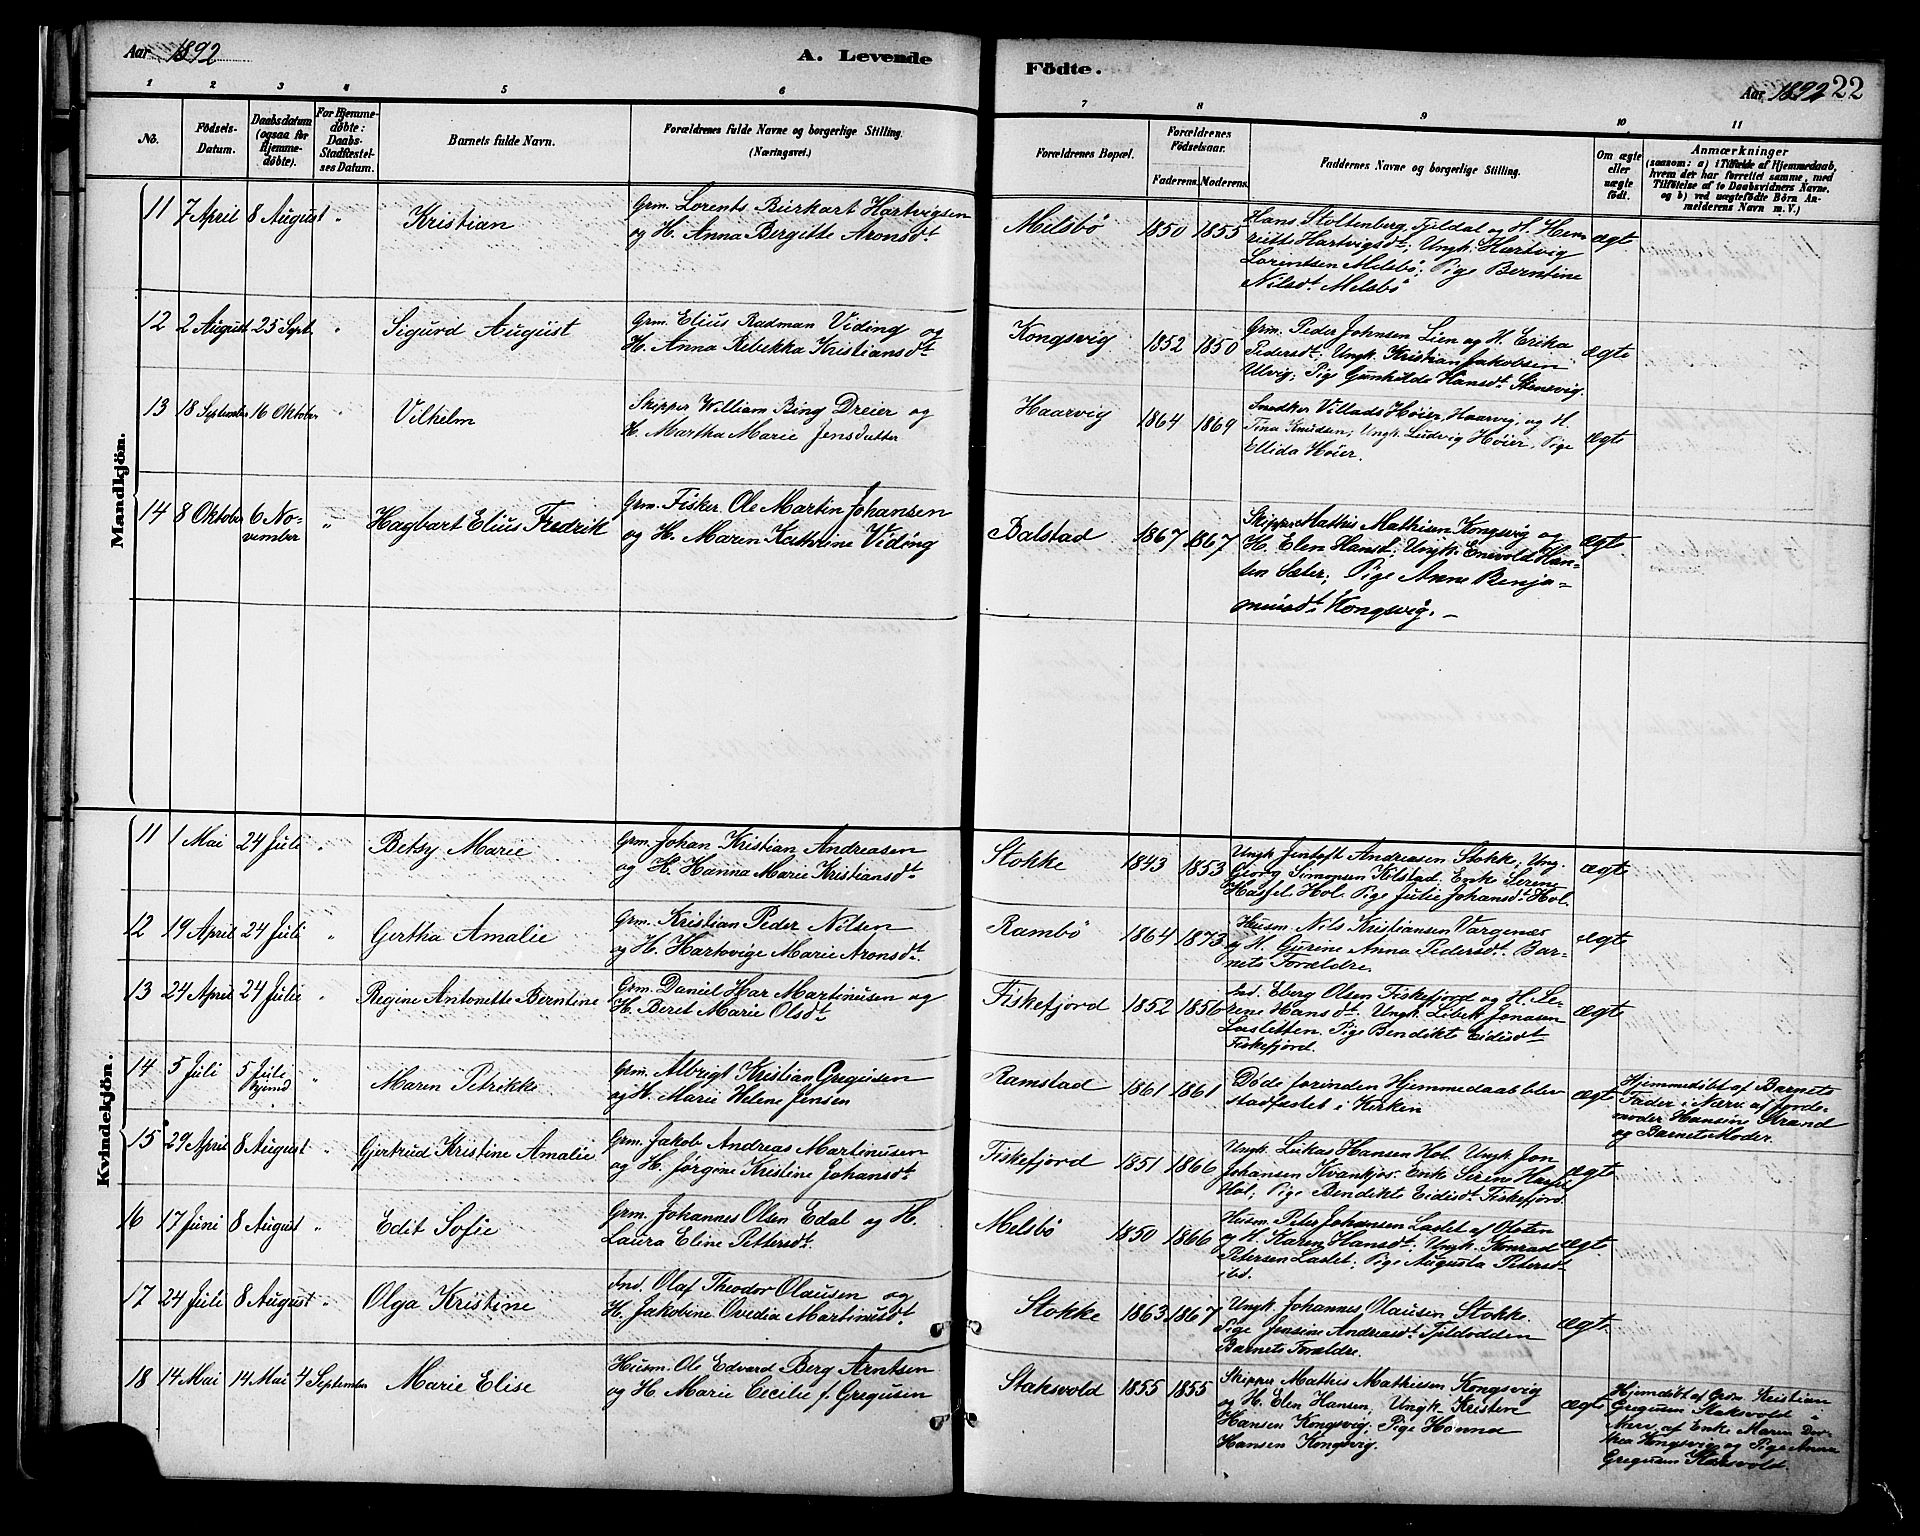 Aar 1892
A. Levende
Födte.
Aar 1892
22
1 2 3 4 5 6
7 8 9 10 11
No.
Födsels-
Datum.
Daabsdatum
(ogsaa for
Hjemme-
döbte).
For Hjemme-
döbte:
Daabs-
Stadfæstel-
ses Datum.
Barnets fulde Navn.
Forældrenes fulde Navne og borgerlige Stilling.
(Næringsvei.)
Forældrenes Bopæl.
Forældrenes
Födselsaar.
Faderens. Moderens.
Faddernes Navne og borgerlige Stilling.
Om ægte
eller
uægte
födt.
Anmærkninger
(saasom: a) i Tilfælde af Hjemmedaab,
hvem der har forrettet samme, med
Tilföielse af to Daabsvidners Navne,
og b) ved uægtefödte Börn An-
melderens Navn m. V.)
Mandkjön.
11 7 April 8 August " Kristian
Grm. Lorents Burkart Hartvigsen
og H. Anna Bergitte Aronsdt
Melsbö 1850 1855
Hans Stoltenberg Fjeldal og H. Hen-
riette Hartvigsdt; Ungk. Hartvig
Lorentsen Melsbö; Pige Berntine
Nilsdt. Melsbö
ægt.
12 2 August 25 Sept. " Sigurd August
Grm. Elius Radman Viding og
H. Anna Rebekka Kristiansdt
Kongsvig 1852 1850
Grm. Peder Johnsen Lien og H. Erika
Pedersdt; Ungk. Kristian Jakobsen
Ulvig; Pige Gunhilda Hansdt. Stensvig.
ægte
13 18 September 16 Oktober " Vilhelm
Skipper William Bing Dreier og
H. Martha Marie Jensdatter
Haarvig 1864 1869
Snedker Villads Höier, Haarvig, og H.
Tina Knudsen; Ungk. Ludvig Höier, Pige
Ellida Höier.
ægte
14 8 Oktober 6 No-
vember " Hagbart Elius Fredrik
Grm. Fisker Ole Martin Johansen
og H. Maren Kathrine Viding
Balstad 1867 1867
Skipper Mathis Mathisen Kongsvig og
H. Elen Hansdt; Ungk. Enevold Han-
sen Sæter; Pige Anne Benja-
minsdt. Kongsvig. —
ægt.
Kvindekjön.
11 1 Mai 24 Juli " Betsy Marie
Grm. Johan Kristian Andreasen
og H. Hanna Marie Kristiansdt
Stokke 1843 1853
Ungk Jentoft Andreasen Stokke; Ung.
Georg Simonsen Kilstad, Enke Seren
Hassel Hol. Pige Julie Johansdt. Hol.
ægte
12 19 April 24 Juli " Gertha Amalie
Grm. Kristian Peder Nilsen
og H. Hartvige Marie Aronsdt.
Rambö 1864 1873
Husm. Nils Kristiansen Vargenæs
og H. Gurine Anna Pedersdt. Bar-
nets Forældre.
ægte
13 24 April 24 Julie " Regine Antonette Berntine
Grm. Daniel Har Martinusen og
H. Beret Marie Olsdt
Fiskefjord 1852 1856
Ind. Eberg Olsen Fiskefjord og H. Se-
rene Hansdt. Ungk. Libek Jonasen
Lasletten. Pige Bendikte Eidisdt
Fiskefjord.
ægte
14 5 Juli 5 Juli
hjemd " Maren Petrikke
Grm. Albrigt Kristian Gregusen
og H. Marie Helene Jensen
Ramstad 1861 1861
Döde forinden Hjemmedaab blev
stadfæstet i Kirken
ægte
Hjemmedöbt af Barnets
Fader i Nærv. af Jorde-
moder Hansine Strand
og Barnets Moder.
15 29 April 8 August " Gjertrud Kristine Amalie
Grm. Jakob Andreas Martinusen
og H. Jørgine Kristine Johansdt.
Fiskefjord 1851 1866
Ungk. Lukas Hansen Hol. Ungk Jon
Johansen Kvankjos. Enke Serene Hassel
Hol; Pige Bendikte Eidisdt. Fiskefjord.
ægte
16 17 Juni 8 August " Edit Sofie
Grm. Johannes Olsen Edal og H.
Laura Eline Pettersdt.
Melsbö 1850 1866
Husm. Peter Johansen Laslet af Ofoten
og H. Karen Hansdt; Ungk. Konrad
Petersen Laslet; Pige Augusta Petersdt
ibd.
ægte
17 24 Juli 8 August " Olga Kristine
Ind. Olaf Theodor Olausen og
H. Jakobine Ovedia Martinusdt.
Stokke 1863 1867
Ungk. Johannes Olausen Stokke.
Pige Jensine Andreasdt. Fjeldodden
Barnets Forældre.
ægt.
18 14 Mai 14 Mai 4 September Marie Elise
Husm. Ole Edvard Berg Arntsen
og H. Marie Cecilie f. Gregusen
Staksvold 1855 1855
Skipper Mathis Mathiesen Kongsvig
og H. Elen Hansen; Ungk. Kristen
Hansen Kongsvig; Pige Hanna
Hansen Kongsvig.
ægte
Hjemdöbt af Grm. Kristian
Gregusen Staksvold i
Nærv. af Enke Maren Dor-
thea Kongsvig og Pige Anna
Gregusen Staksvold.